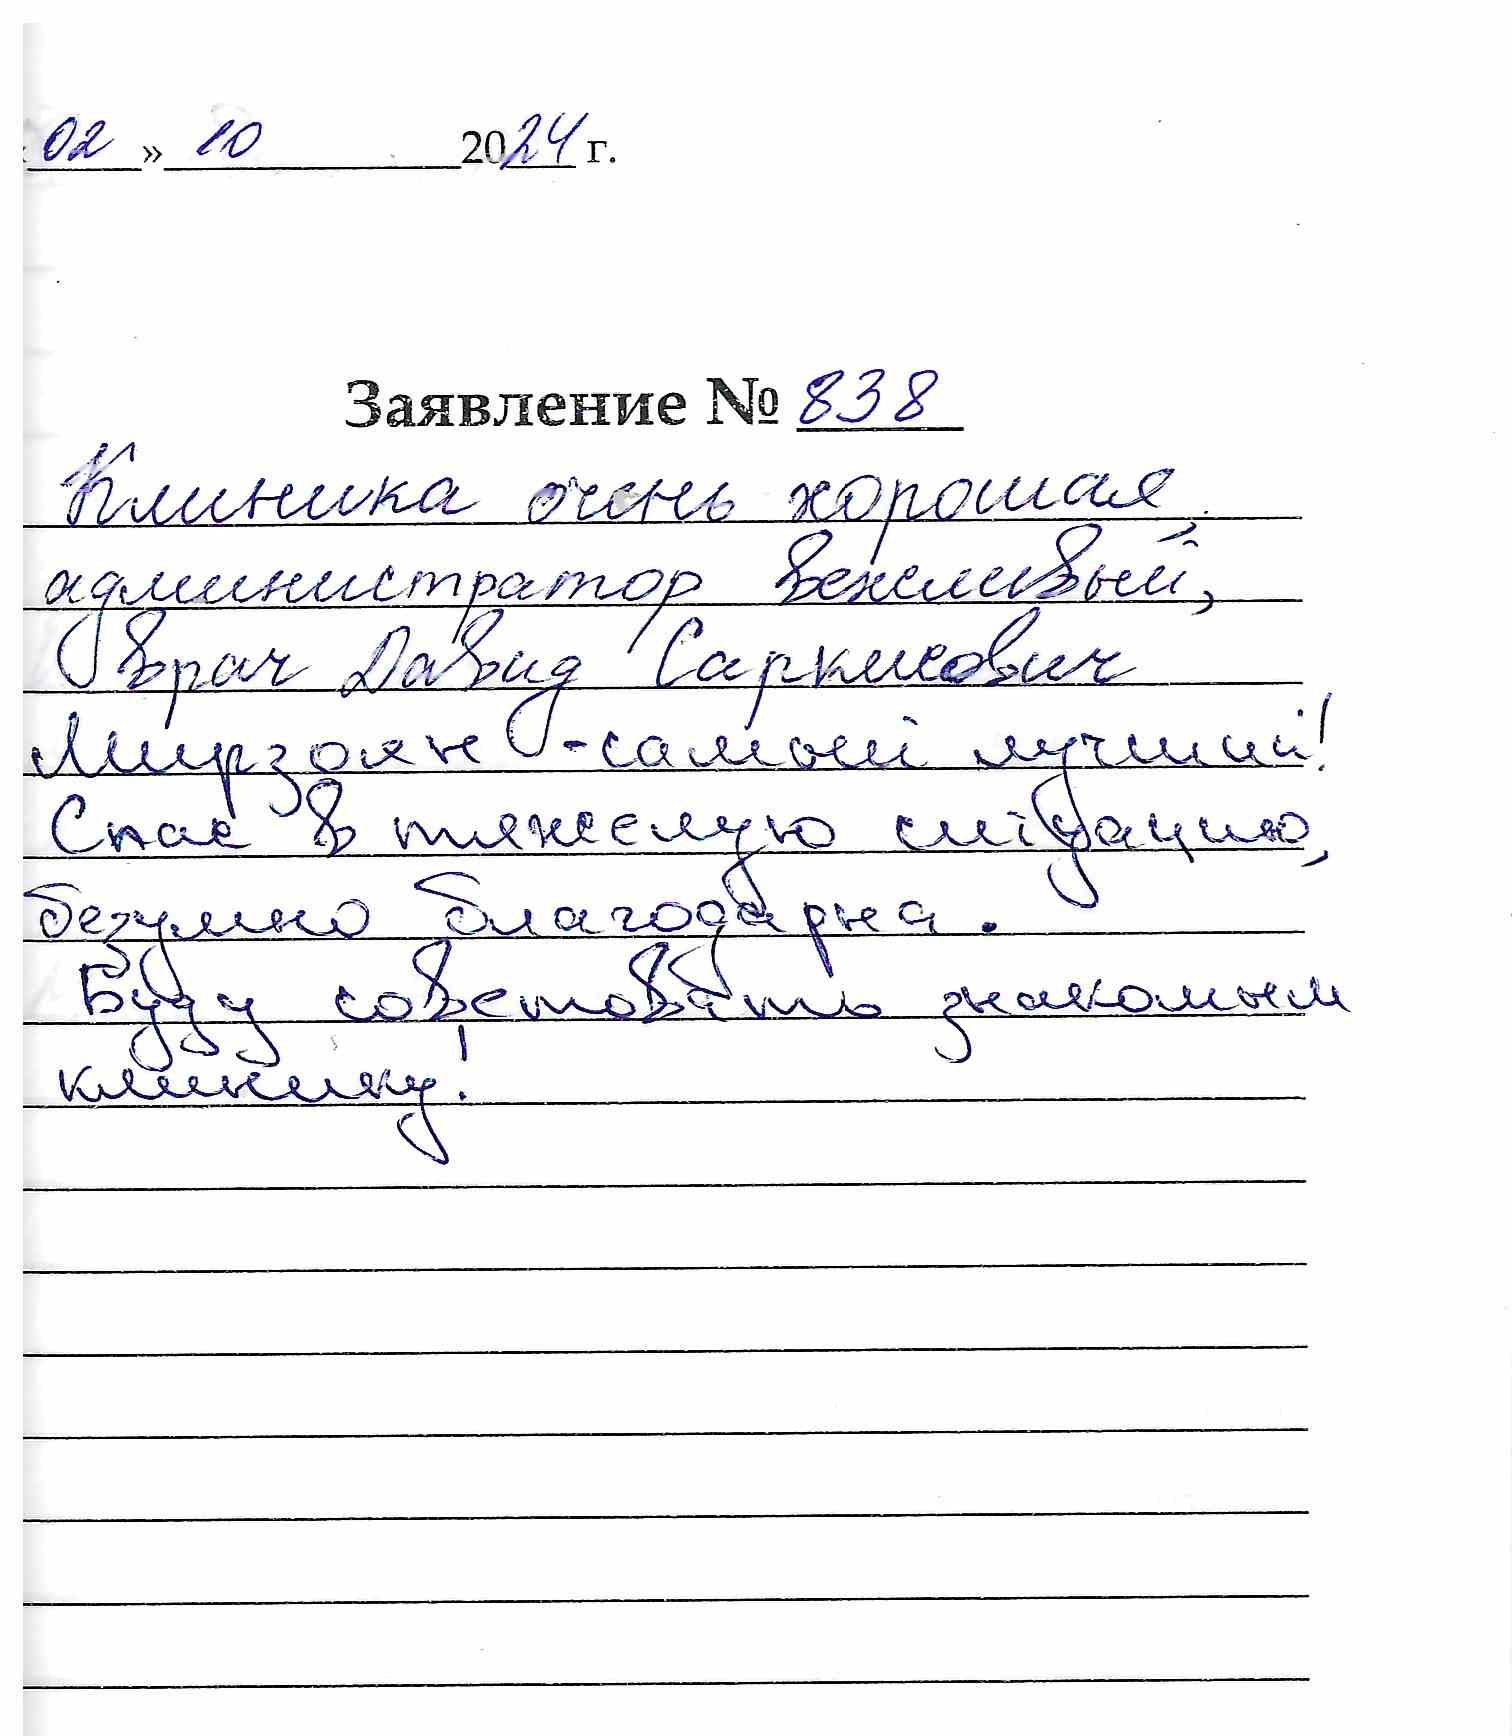 02 » 10 2024 г.
Заявление № 838
Клиника очень хорошая,
администратор вежливый,
врач Давид Саркисович
Мирзоян - самый лучший!
Спас в тяжелую ситуацию,
безумно благодарна.
Буду советовать знакомым
клинику!